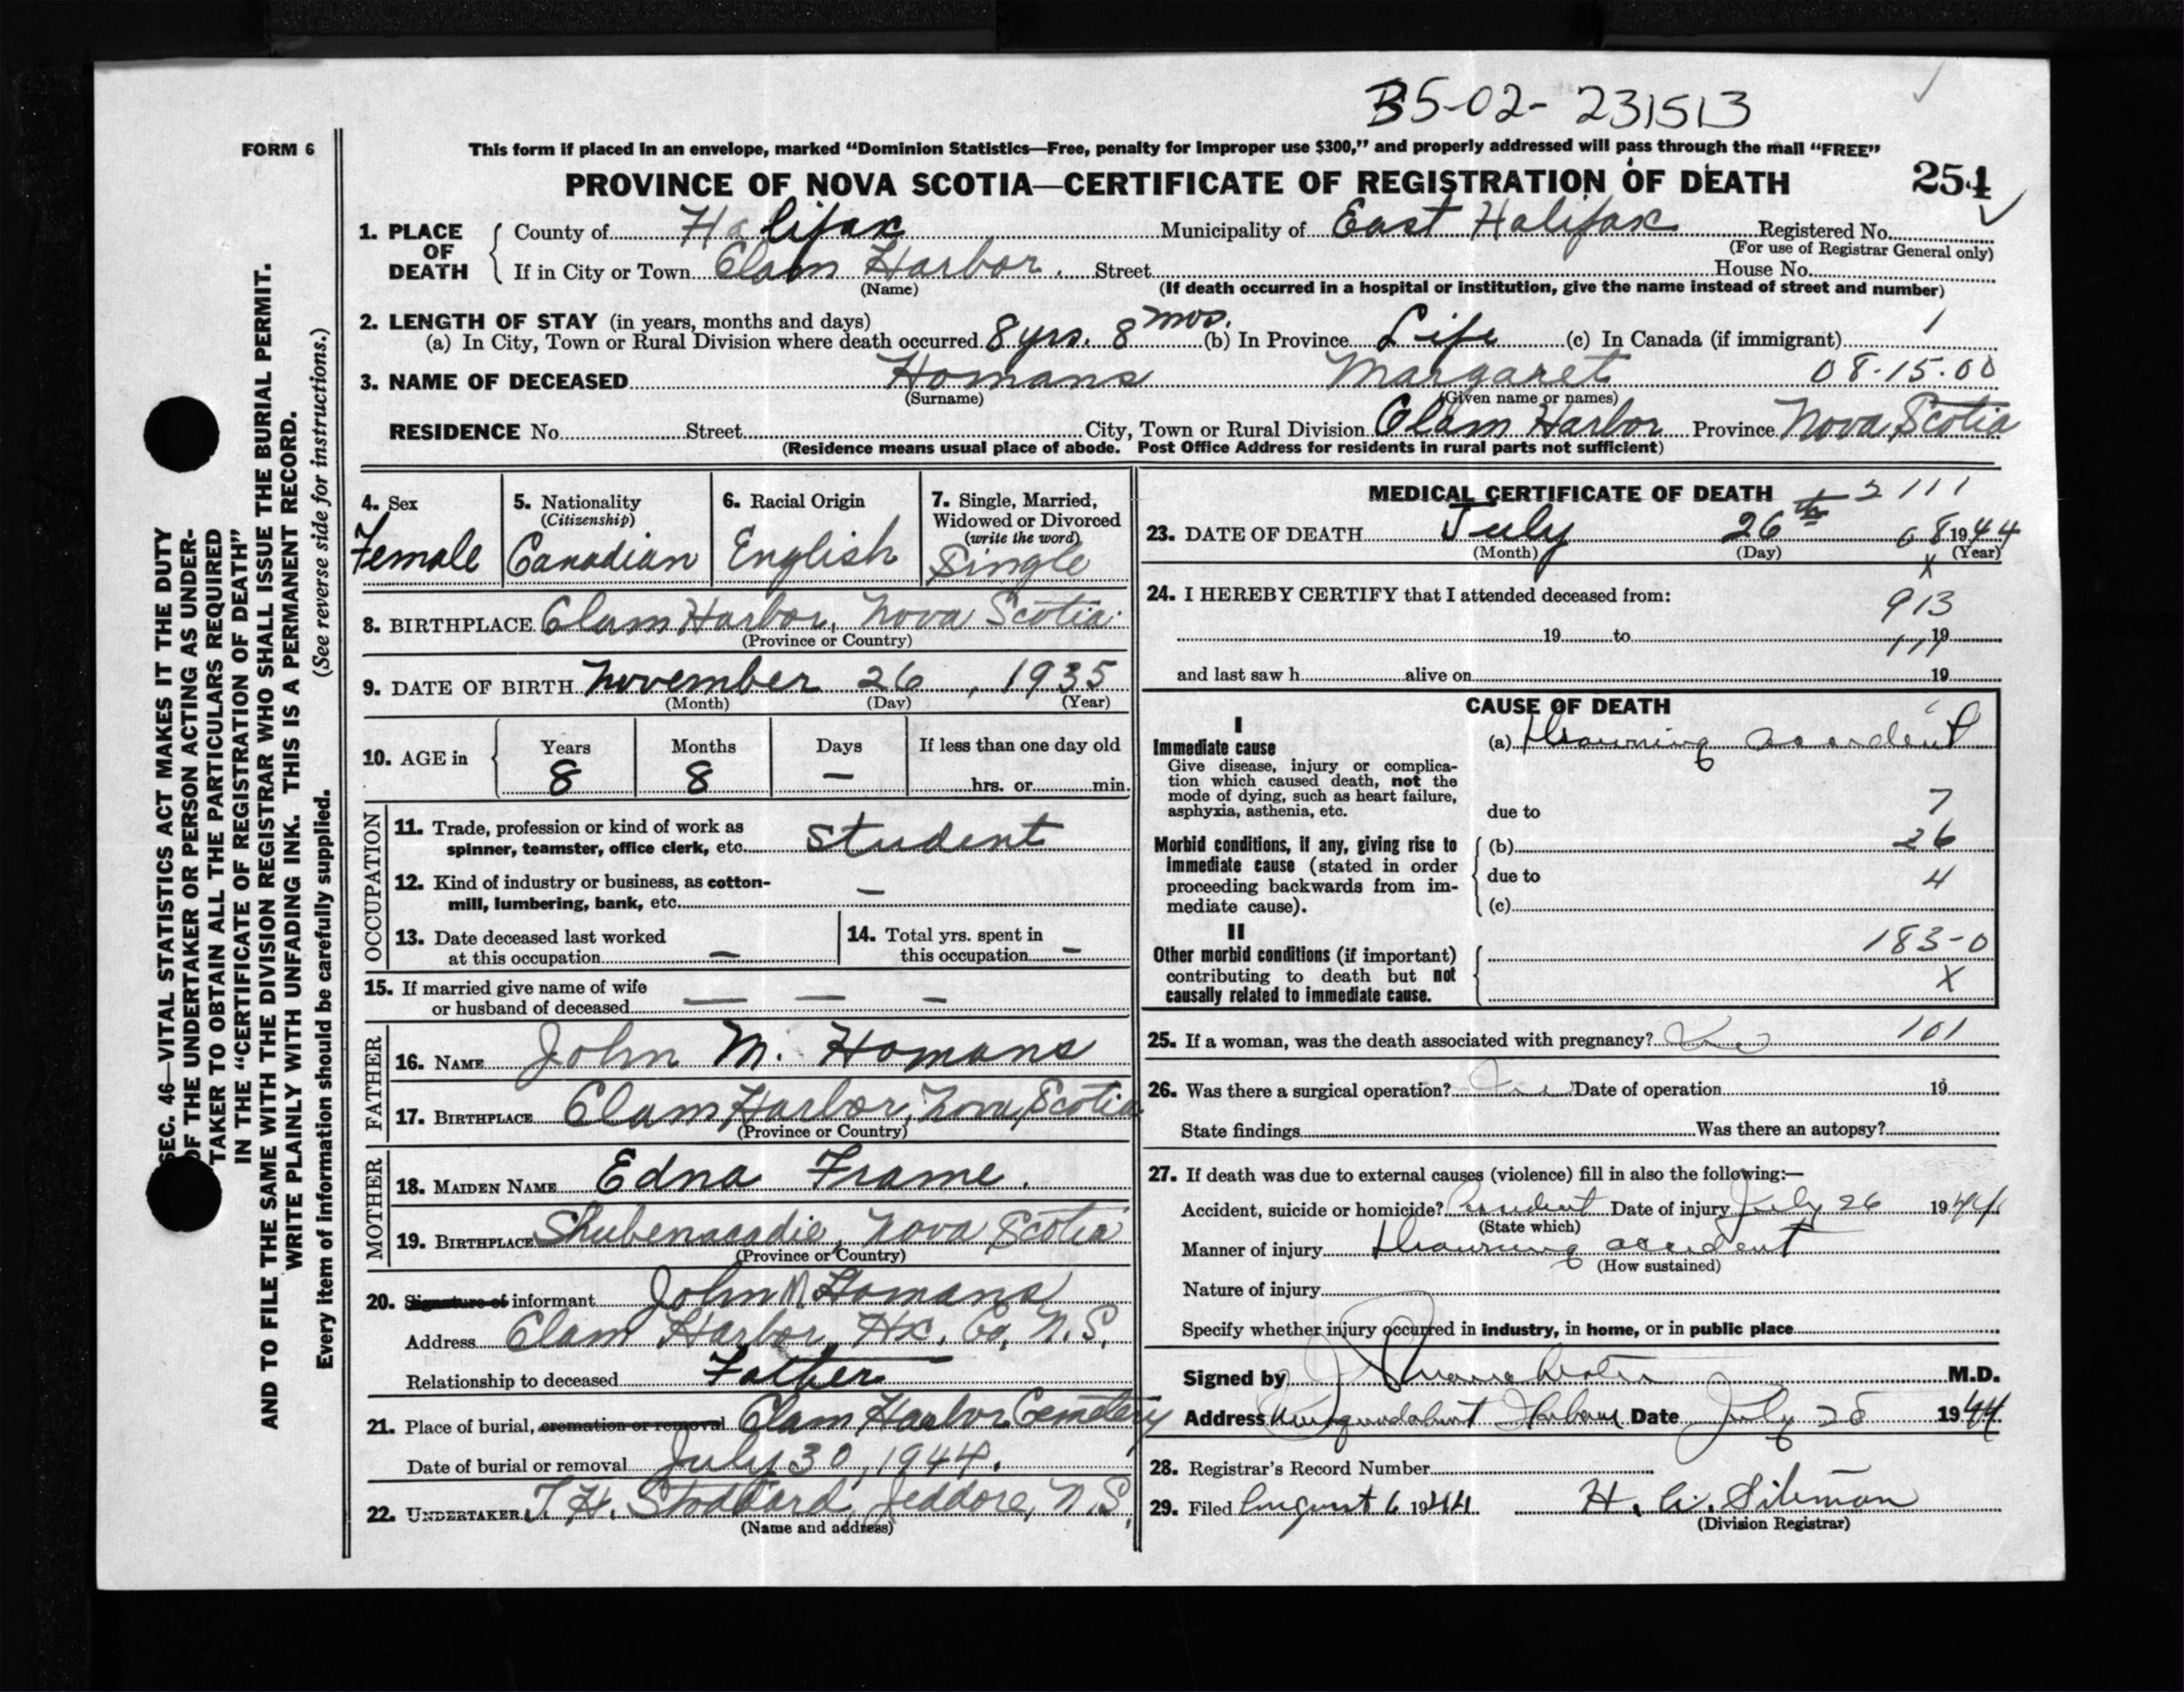 B5-02-231513
FORM 6
This form if placed in an envelope, marked "Dominion Statistics—Free, penalty for improper use $300," and properly addressed will pass through the mail "FREE"
PROVINCE OF NOVA SCOTIA—CERTIFICATE OF REGISTRATION OF DEATH 254
1. PLACE OF DEATH { County of Halifax Municipality of East Halifax Registered No.
(For use of Registrar General only)
If in City or Town Clam Harbor. Street House No.
(Name) (If death occurred in a hospital or institution, give the name instead of street and number)
2. LENGTH OF STAY (in years, months and days)
(a) In City, Town or Rural Division where death occurred 8 yrs. 8 mos. (b) In Province Life (c) In Canada (if immigrant)
3. NAME OF DECEASED Homans Margaret 08-15-00
(Surname) (Given name or names)
RESIDENCE No. Street City, Town or Rural Division Clam Harbor Province Nova Scotia
(Residence means usual place of abode. Post Office Address for residents in rural parts not sufficient)
4. Sex
Female
5. Nationality
(Citizenship)
Canadian
6. Racial Origin
English
7. Single, Married, Widowed or Divorced
(write the word)
Single
8. BIRTHPLACE Clam Harbor, Nova Scotia
(Province or Country)
9. DATE OF BIRTH November 26, 1935
(Month) (Day) (Year)
10. AGE in { Years Months Days If less than one day old
8 8 — hrs. or min.
OCCUPATION
11. Trade, profession or kind of work as
spinner, teamster, office clerk, etc. Student
12. Kind of industry or business, as cotton-
mill, lumbering, bank, etc. —
13. Date deceased last worked
at this occupation —
14. Total yrs. spent in
this occupation —
15. If married give name of wife
or husband of deceased — — —
FATHER
16. NAME John M. Homans
17. BIRTHPLACE Clam Harbor, Nova Scotia
(Province or Country)
MOTHER
18. MAIDEN NAME Edna Frame.
19. BIRTHPLACE Shubenacadie, Nova Scotia
(Province or Country)
20. Signature of informant John M Homans
Address Clam Harbor, Hx. Co, N.S.
Relationship to deceased Father
21. Place of burial, cremation or removal Clam Harbor Cemetery
Date of burial or removal July 30, 1944.
22. UNDERTAKER T. H. Stoddard, Jeddore, N.S.
(Name and address)
MEDICAL CERTIFICATE OF DEATH 2111
23. DATE OF DEATH July 26th 68 1944
(Month) (Day) (Year)
X
24. I HEREBY CERTIFY that I attended deceased from: 913
19 to 19
and last saw h alive on 19
CAUSE OF DEATH
I
Immediate cause
Give disease, injury or complica-
tion which caused death, not the
mode of dying, such as heart failure,
asphyxia, asthenia, etc.
(a) Drowning accident
due to 7
Morbid conditions, if any, giving rise to
immediate cause (stated in order
proceeding backwards from im-
mediate cause).
(b) 26
due to 4
(c)
II
Other morbid conditions (if important)
contributing to death but not
causally related to immediate cause.
183-0
X
25. If a woman, was the death associated with pregnancy? 101
26. Was there a surgical operation? Date of operation 19
State findings Was there an autopsy?
27. If death was due to external causes (violence) fill in also the following:—
Accident, suicide or homicide? Accident Date of injury July 26 1944
(State which)
Manner of injury Drowning accident
(How sustained)
Nature of injury
Specify whether injury occurred in industry, in home, or in public place
Signed by M.D.
Address Musquodoboit Harbour Date July 28 1944
28. Registrar's Record Number
29. Filed August 6 1944 H. Siteman
(Division Registrar)
SEC. 46—VITAL STATISTICS ACT MAKES IT THE DUTY
OF THE UNDERTAKER OR PERSON ACTING AS UNDER-
TAKER TO OBTAIN ALL THE PARTICULARS REQUIRED
IN THE "CERTIFICATE OF REGISTRATION OF DEATH"
AND TO FILE THE SAME WITH THE DIVISION REGISTRAR WHO SHALL ISSUE THE BURIAL PERMIT.
WRITE PLAINLY WITH UNFADING INK. THIS IS A PERMANENT RECORD.
Every item of information should be carefully supplied. (See reverse side for instructions.)